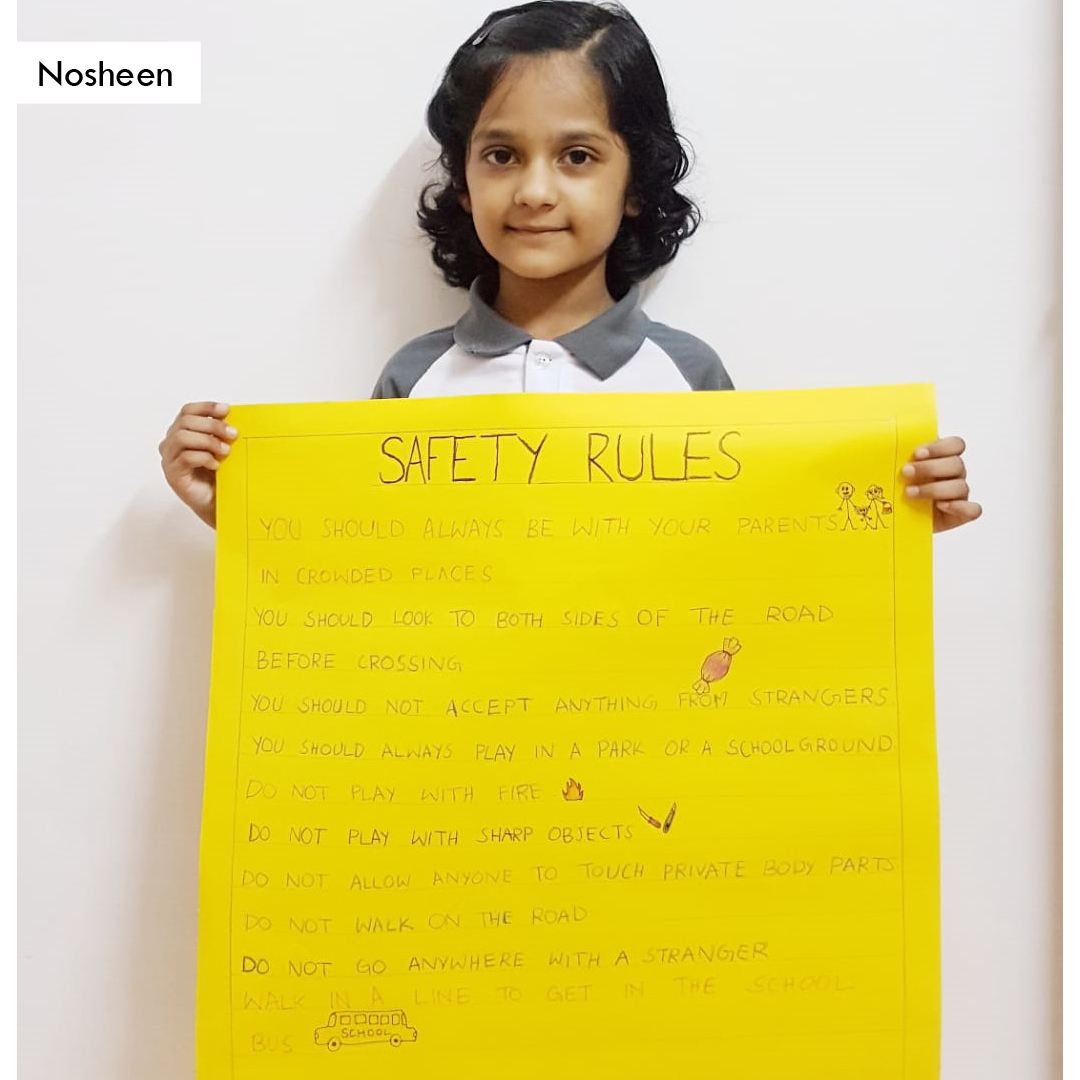 Nosheen
SAFETY RULES
YOU SHOULD ALWAYS BE WITH YOUR PARENTS
IN CROWDED PLACES
YOU SHOULD LOOK TO BOTH SIDES OF THE ROAD
BEFORE CROSSING
YOU SHOULD NOT ACCEPT ANYTHING FROM STRANGERS
YOU SHOULD ALWAYS PLAY IN A PARK OR A SCHOOLGROUND
DO NOT PLAY WITH FIRE
DO NOT PLAY WITH SHARP OBJECTS
DO NOT ALLOW ANYONE TO TOUCH PRIVATE BODY PARTS
DO NOT WALK ON THE ROAD
DO NOT GO ANYWHERE WITH A STRANGER
WALK IN A LINE TO GET IN THE SCHOOL
BUS
SCHOOL